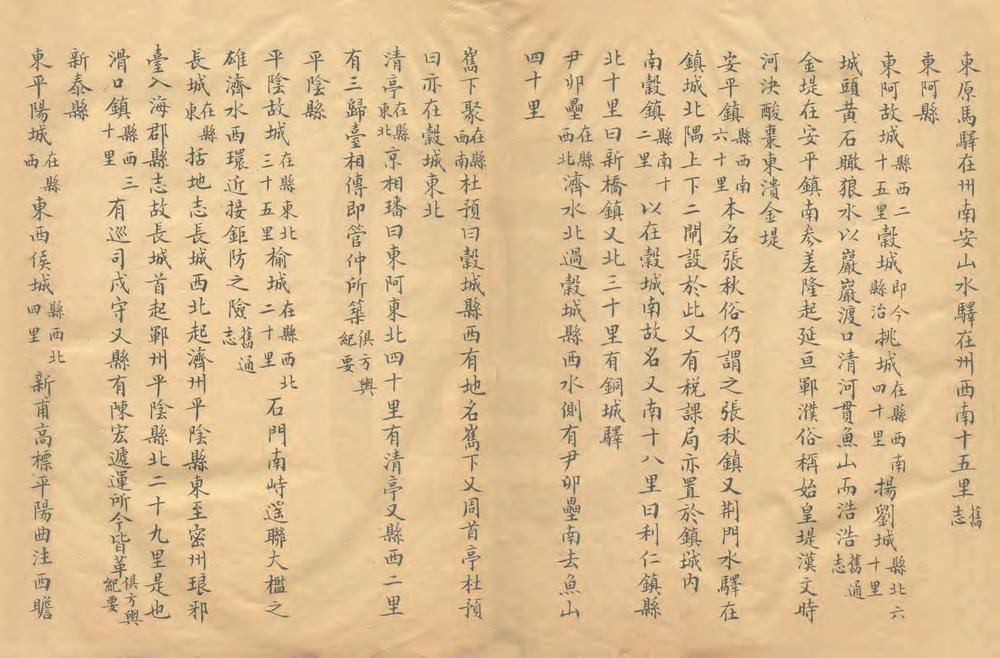 東原馬驛在州南安山水驛在州西南十五里舊志
東阿縣
東阿故城縣西二十五里穀城即今縣治桃城在縣西南四十里揚劉城縣北六十里
城頭黃石瞰狼水以巖巖渡口清河貫魚山而浩浩舊通志
金堤在安平鎮南參差隆起延亘鄆濮俗稱始皇堤漢文時
河決酸棗東潰金堤
安平鎮縣西南六十里本名張秋俗仍謂之張秋鎮又荆門水驛在
鎮城北隅上下二閘設於此又有稅課局亦置於鎮城內
南穀鎮縣南十二里以在穀城南故名又南十八里曰利仁鎮縣
北十里曰新橋鎮又北三十里有銅城驛
尹卯壘在縣西北濟水北過穀城縣西水側有尹卯壘南去魚山
四十里
嶲下聚在縣西南杜預曰穀城縣西有地名嶲下又周首亭杜預
曰亦在穀城東北
清亭在縣東北京相璠曰東阿東北四十里有清亭又縣西二里
有三歸臺相傳即管仲所築俱方輿紀要
平陰縣
平陰故城在縣東北三十五里榆城在縣西北二十里石門南峙遥聯大檻之
雄濟水西環近接鉅防之險舊通志
長城在縣東括地志長城西北起濟州平陰縣東至密州琅邪
臺入海郡縣志故長城首起鄆州平陰縣北二十九里是也
滑口鎮縣西三十里有巡司戍守又縣有陳宏遞運所今皆革俱方輿紀要
新泰縣
東平陽城在縣西東西侯城縣西北四里新甫高標平陽曲注西瞻